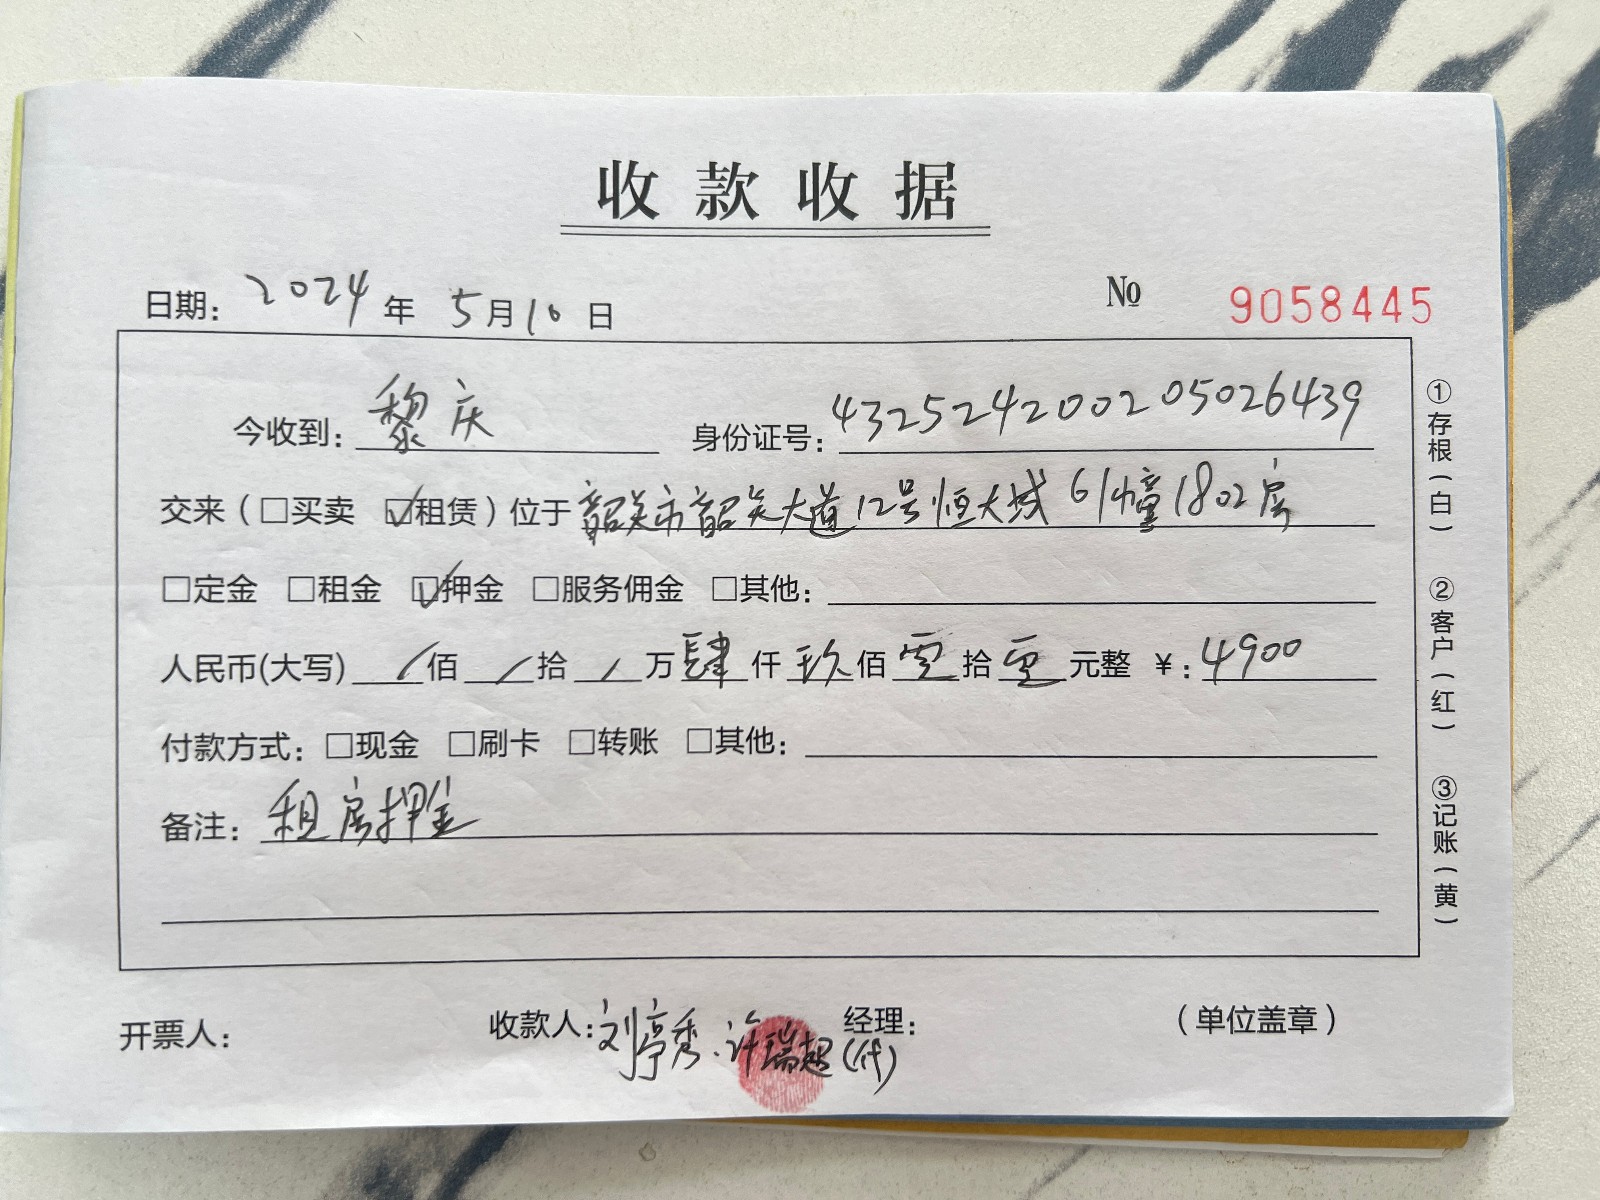 收款收据
日期：2024年 5月10日 № 9058445
今收到：黎庆 身份证号：432524200205026439
交来（□买卖 ☑租赁）位于韶关市韶关大道12号恒大城61幢1802房
□定金 □租金 ☑押金 □服务佣金 □其他：
人民币(大写) /佰 /拾 /万 肆仟 玖佰 零拾 零元整 ￥：4900
付款方式：□现金 □刷卡 □转账 □其他：
备注：租房押金
开票人： 收款人：刘亭秀、许瑞超(代) 经理： （单位盖章）
①存根（白）
②客户（红）
③记账（黄）